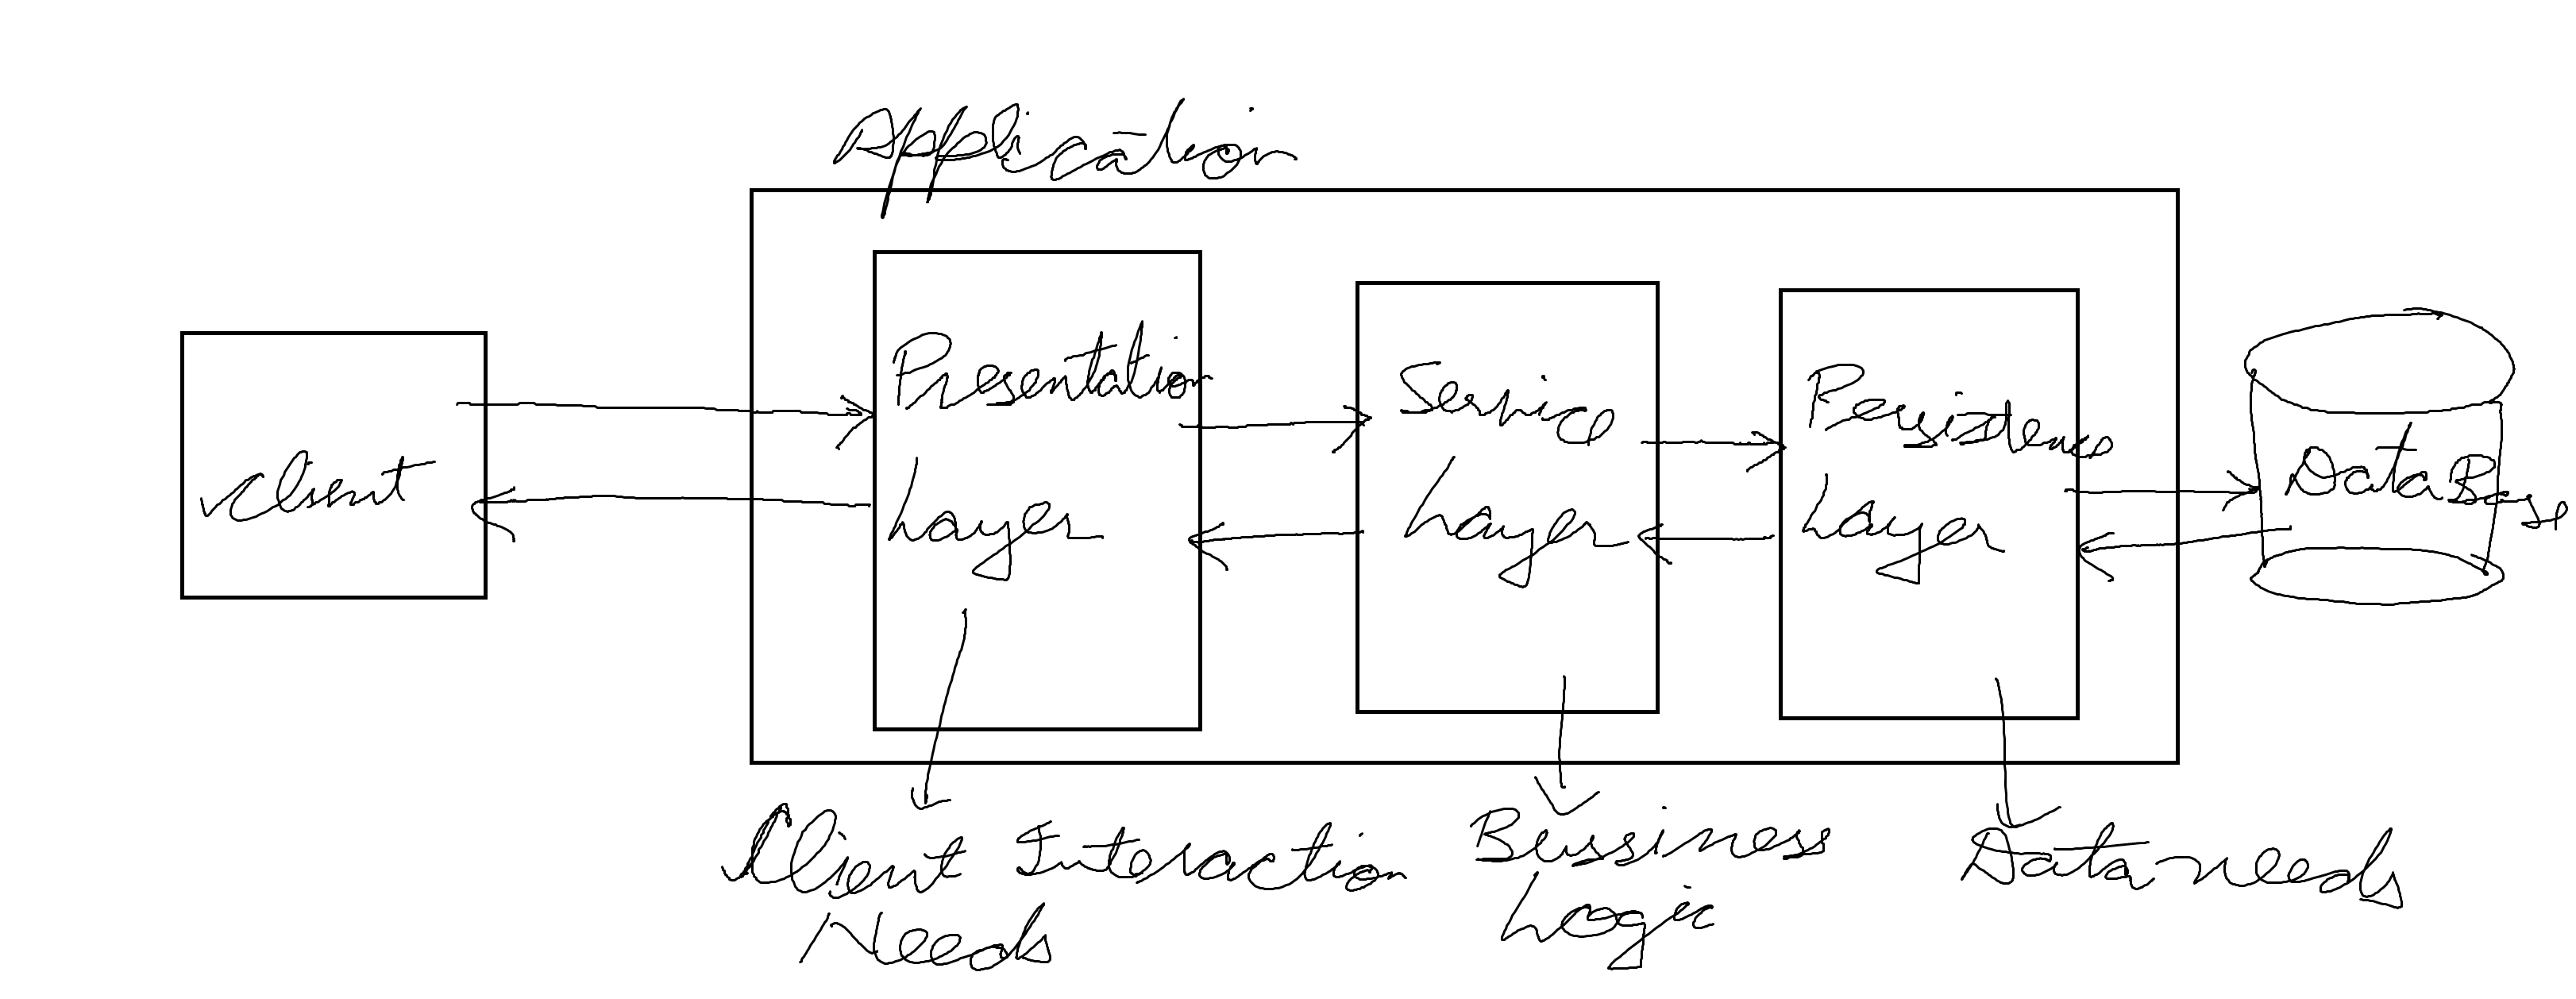 Application
Client
Presentation
Layer
Service
Layer
Persistence
Layer
DataBase
Client Interaction
Needs
Bussiness
Logic
Data needs